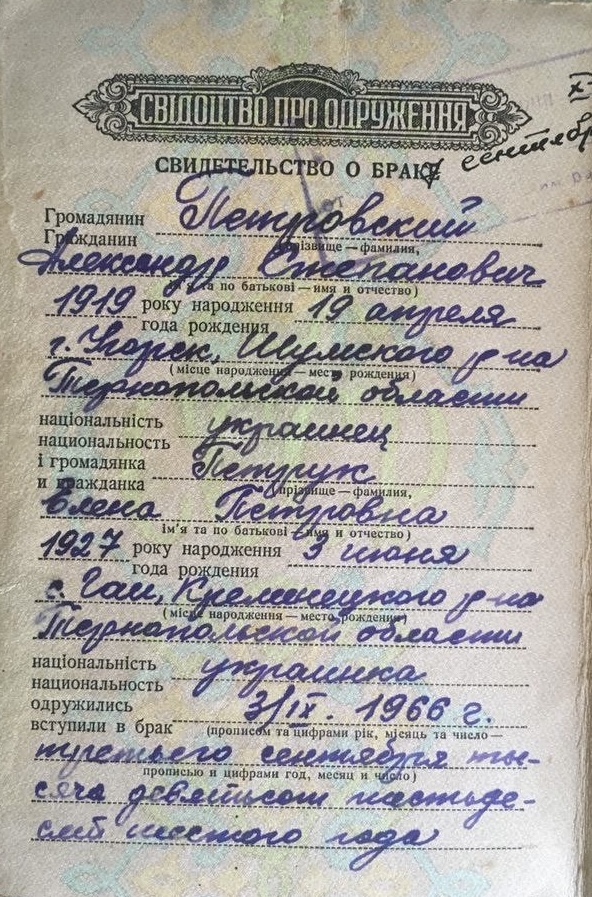 СВІДОЦТВО ПРО ОДРУЖЕННЯ
СВИДЕТЕЛЬСТВО О БРАКЕ
сентябр
Громадянин Петровский
Гражданин (прізвище — фамилия,
Александр Степанович
ім'я та по батькові — имя и отчество)
1919 року народження 19 апреля
года рождения
Шумского р-на
(місце народження — место рождения)
Тернопольской области
національність украинец
национальность
і громадянка Петрук
и гражданка (прізвище — фамилия,
Елена Петровна
ім'я та по батькові — имя и отчество)
1927 року народження 3 июня
года рождения
с. Гаи, Кременецкого р-на
(місце народження — место рождения)
Тернопольской области
національність украинка
национальность
одружились 3/IX. 1966 г.
вступили в брак (прописом та цифрами рік, місяць та число —
третьего сентября ты-
прописью и цифрами год, месяц и число)
сяча девятьсот шестьде-
сят шестого года